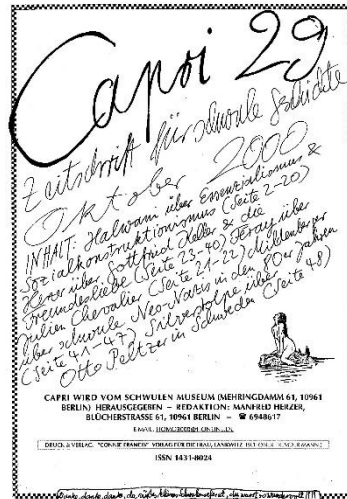 Capri 29
Zeitschrift für schwule Geschichte
Oktober 2000
INHALT: Halwani über Essenzialismus &
Sozialkonstruktionismus (Seite 2-20)
Herzer über Gottfried Keller & die
Freundesliebe (Seite 23-40) Féray über
Julien Chevalier (Seite 21-22) Mildenberger
über schwule Neo-Nazis in den 80er Jahren
(Seite 41-47) Silverstolpe über
Otto Peltzer in Schweden (Seite 48)
CAPRI WIRD VOM SCHWULEN MUSEUM (MEHRINGDAMM 61, 10961
BERLIN) HERAUSGEGEBEN – REDAKTION: MANFRED HERZER,
BLÜCHERSTRASSE 61, 10961 BERLIN – ☎ 6948617
EMAIL:
DRUCK & VERLAG: "CONNIE FRANCIS" VERLAG FÜR DIE FRAU, LANKWITZ
ISSN 1431-8024
Danke, danke, danke,